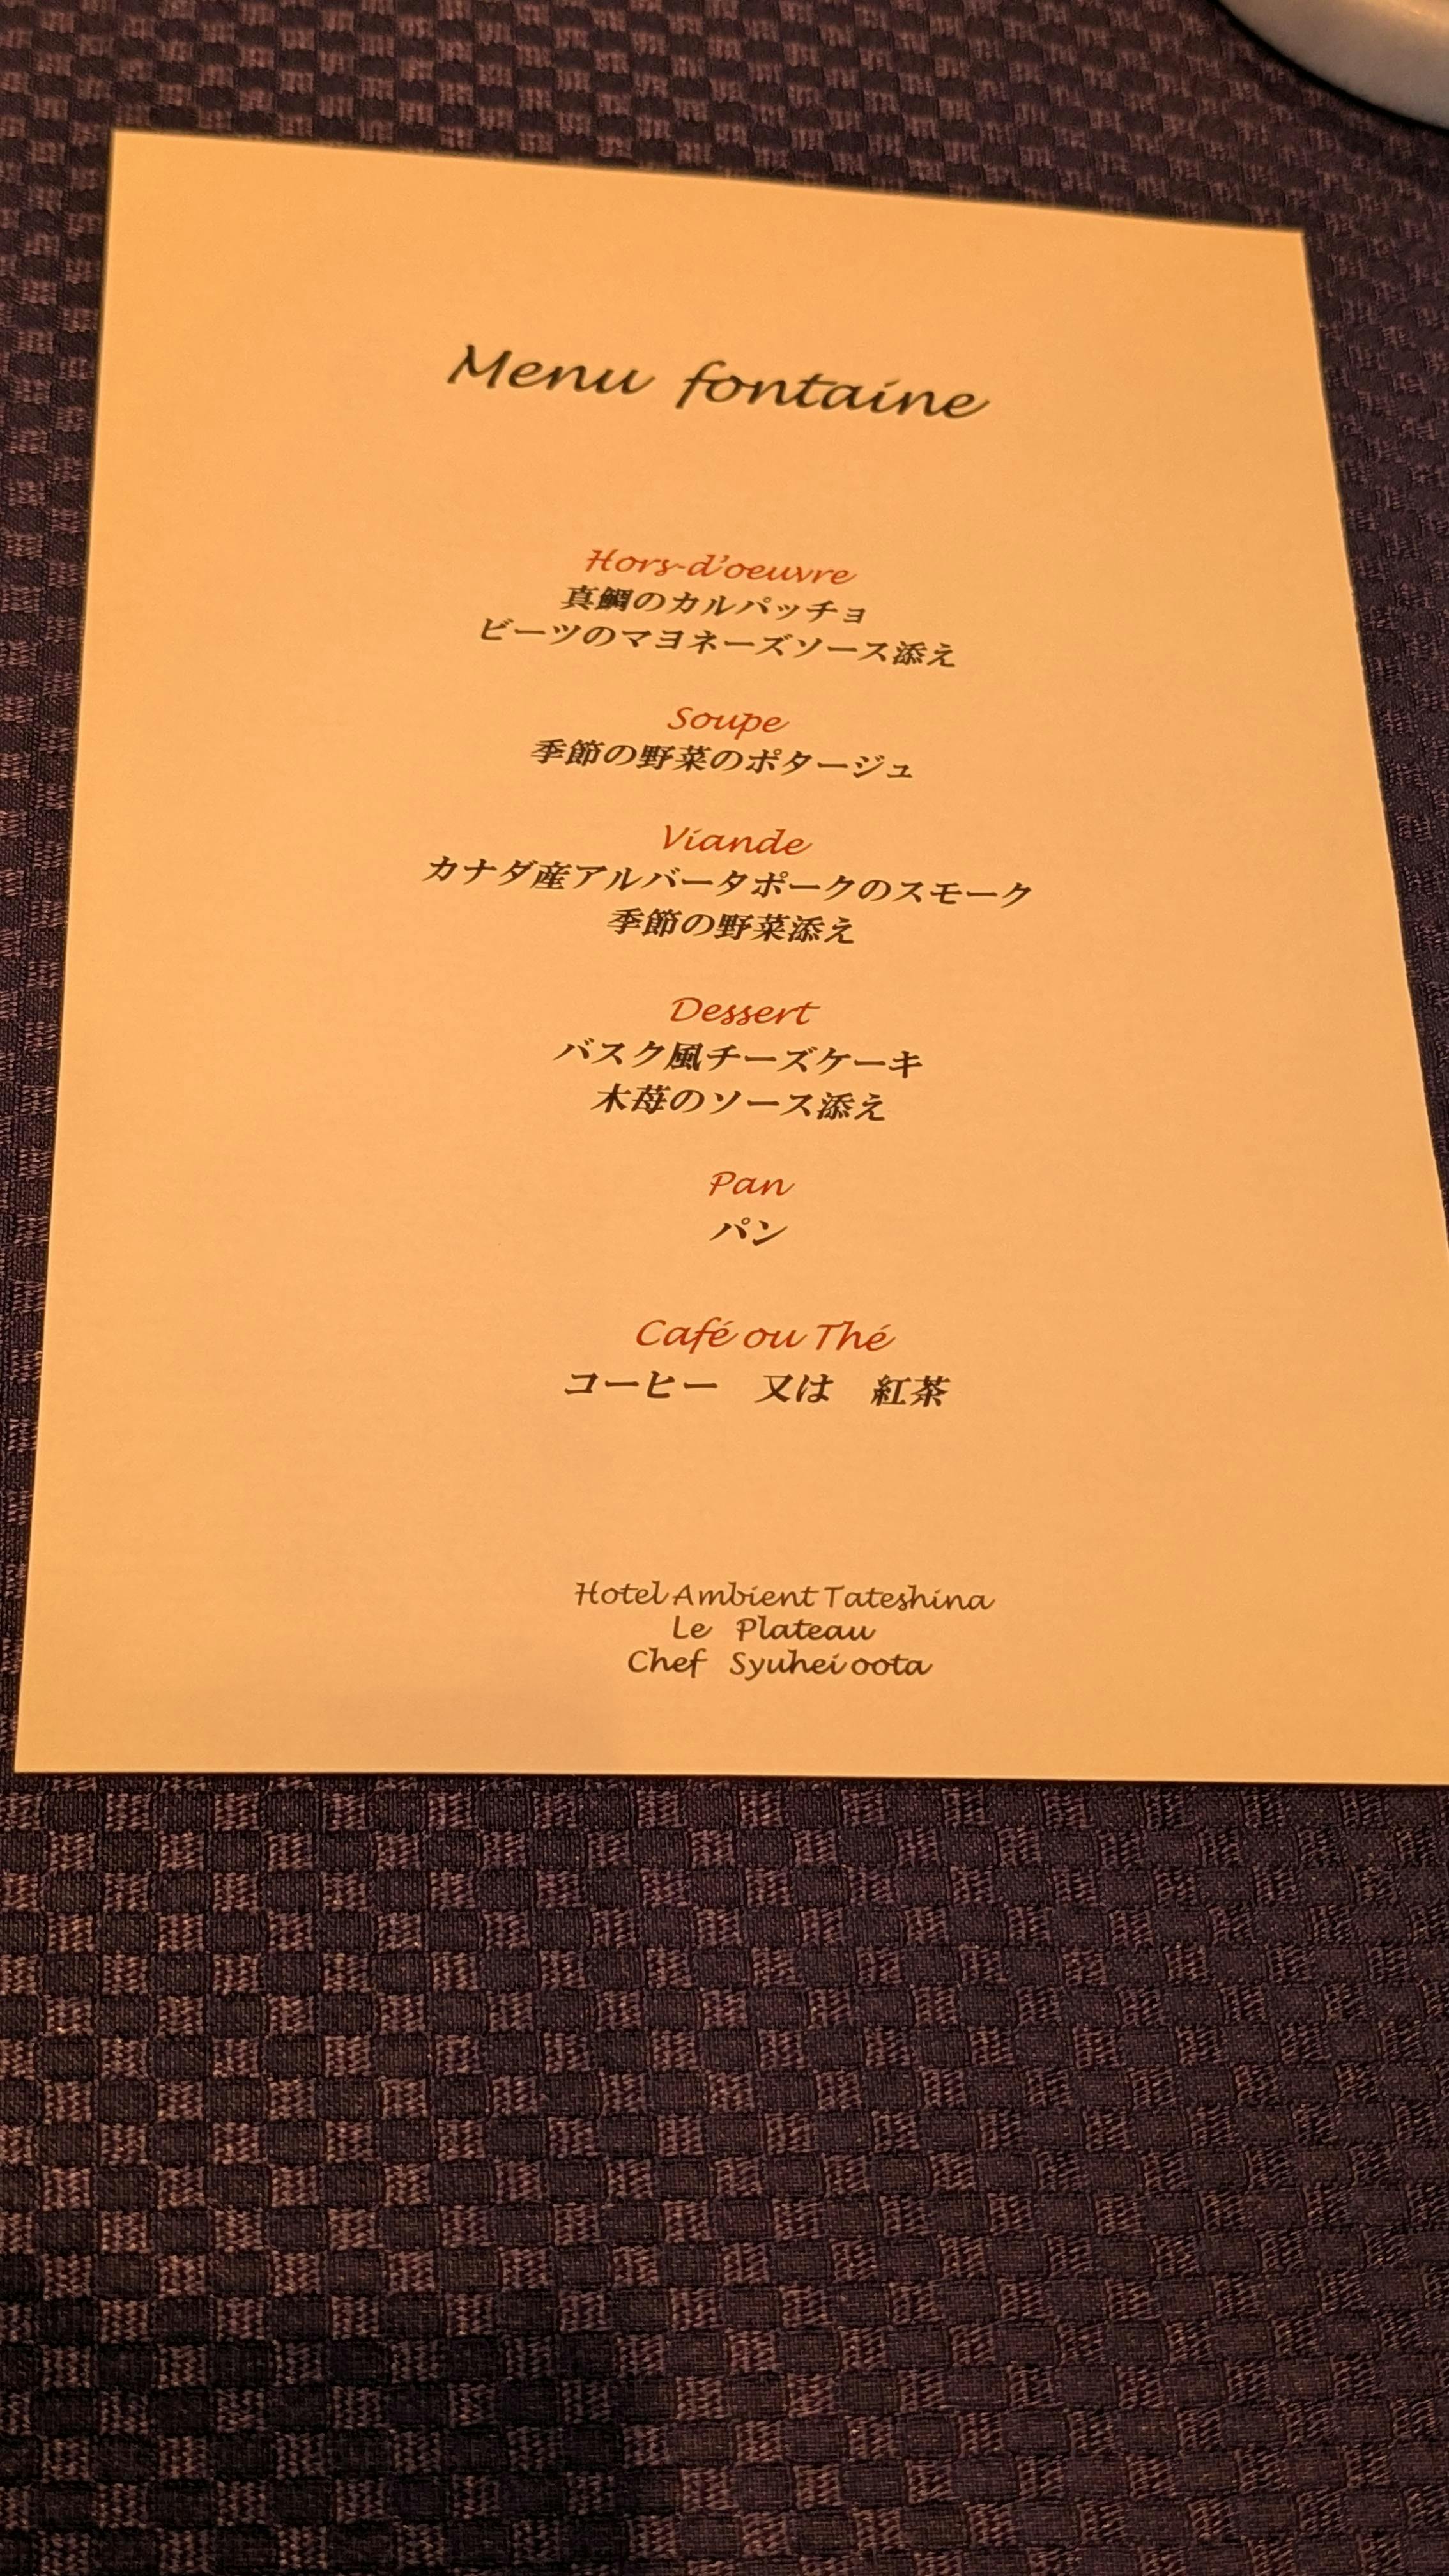 Menu fontaine
Hors-d'oeuvre
真鯛のカルパッチョ
ビーツのマヨネーズソース添え
Soupe
季節の野菜のポタージュ
Viande
カナダ産アルバータポークのスモーク
季節の野菜添え
Dessert
バスク風チーズケーキ
木苺のソース添え
Pan
パン
Café ou Thé
コーヒー　又は　紅茶
Hotel Ambient Tateshina
Le Plateau
Chef Syuhei oota